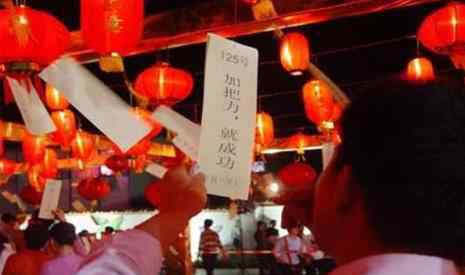 125号
加把力，就成功